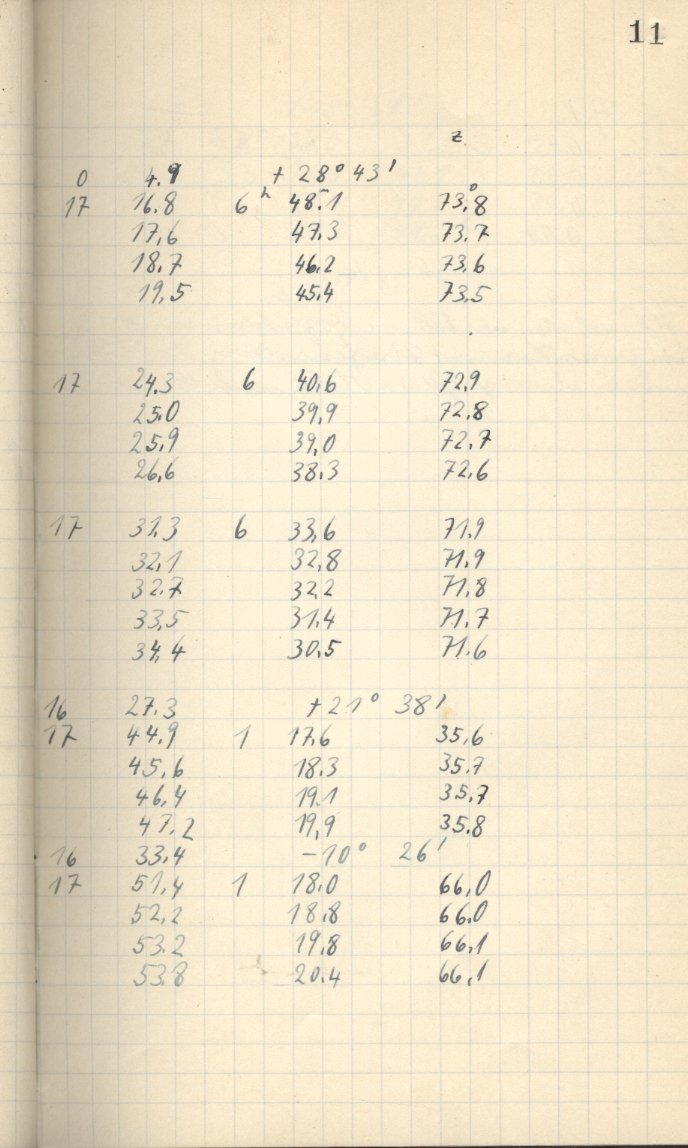 11
z
0 4.9 + 28° 43'
17 16.8 6ʰ 48.1 73°.8
17,6 47.3 73.7
18.7 46.2 73.6
19,5 45.4 73.5
17 24.3 6 40,6 72,9
25.0 39,9 72,8
25,9 39,0 72,7
26,6 38.3 72,6
17 31.3 6 33,6 71,9
32,1 32,8 71,9
32.7 32,2 71,8
33,5 31.4 71,7
34,4 30.5 71.6
16 27.3 + 21° 38'
17 44.9 1 17,6 35,6
45,6 18.3 35,7
46,4 19.1 35,7
47.2 19,9 35.8
16 33.4 - 10° 26'
17 51,4 1 18.0 66,0
52,2 18,8 66.0
53.2 19,8 66,1
53.8 20.4 66,1